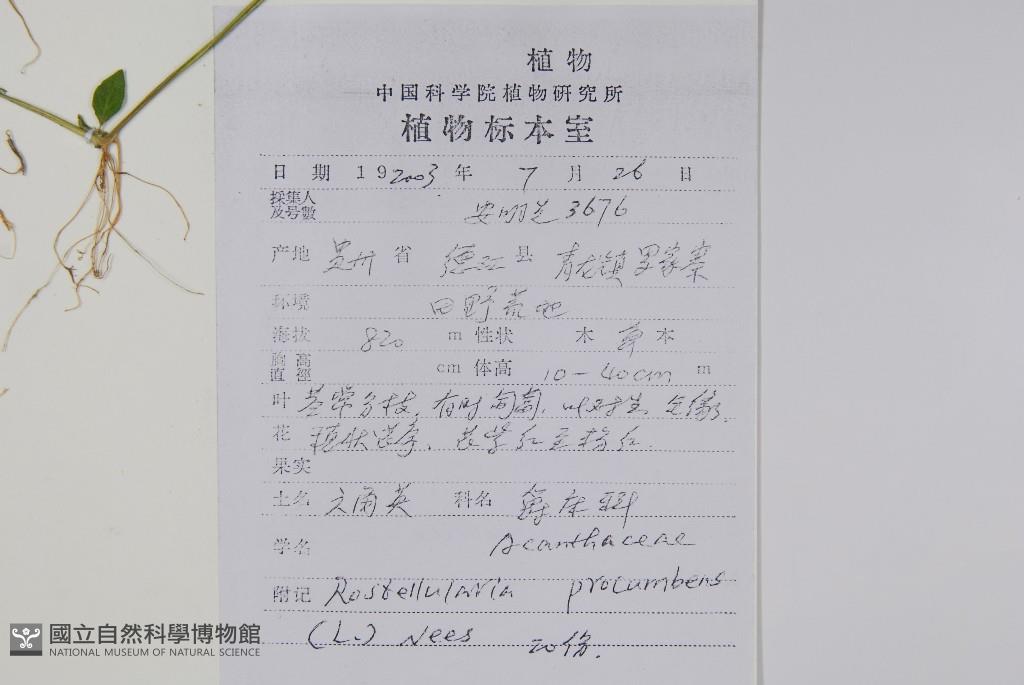 植物
中国科学院植物研究所
植物标本室
日期 19 2003 年 7 月 26 日
採集人及号數 安明态 3676
产地 贵州 省 德江 县 青龙镇 罗家寨
环境 田野荒地
海拔 820 m 性状 木 草 本
胸高直徑 cm 体高 10-40cm m
叶 茎常分枝, 有时匍匐, 叶对生 全缘,
花 穗状花序, 花紫红至粉红.
果实
土名 六角英 科名 爵床科
学名 Acanthaceae
附记 Rostellularia procumbens
(L.) Nees 20份.
國立自然科學博物館
NATIONAL MUSEUM OF NATURAL SCIENCE